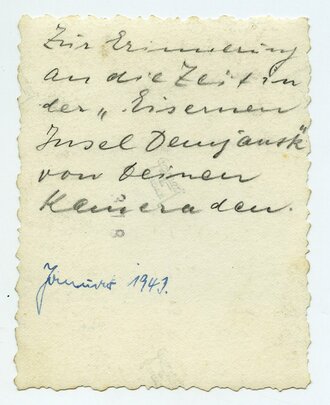 Zur Erinnerung
an die Zeit in
der „Eisernen
Insel Demjansk“
von Deinen
Kameraden.
Januar 1943.